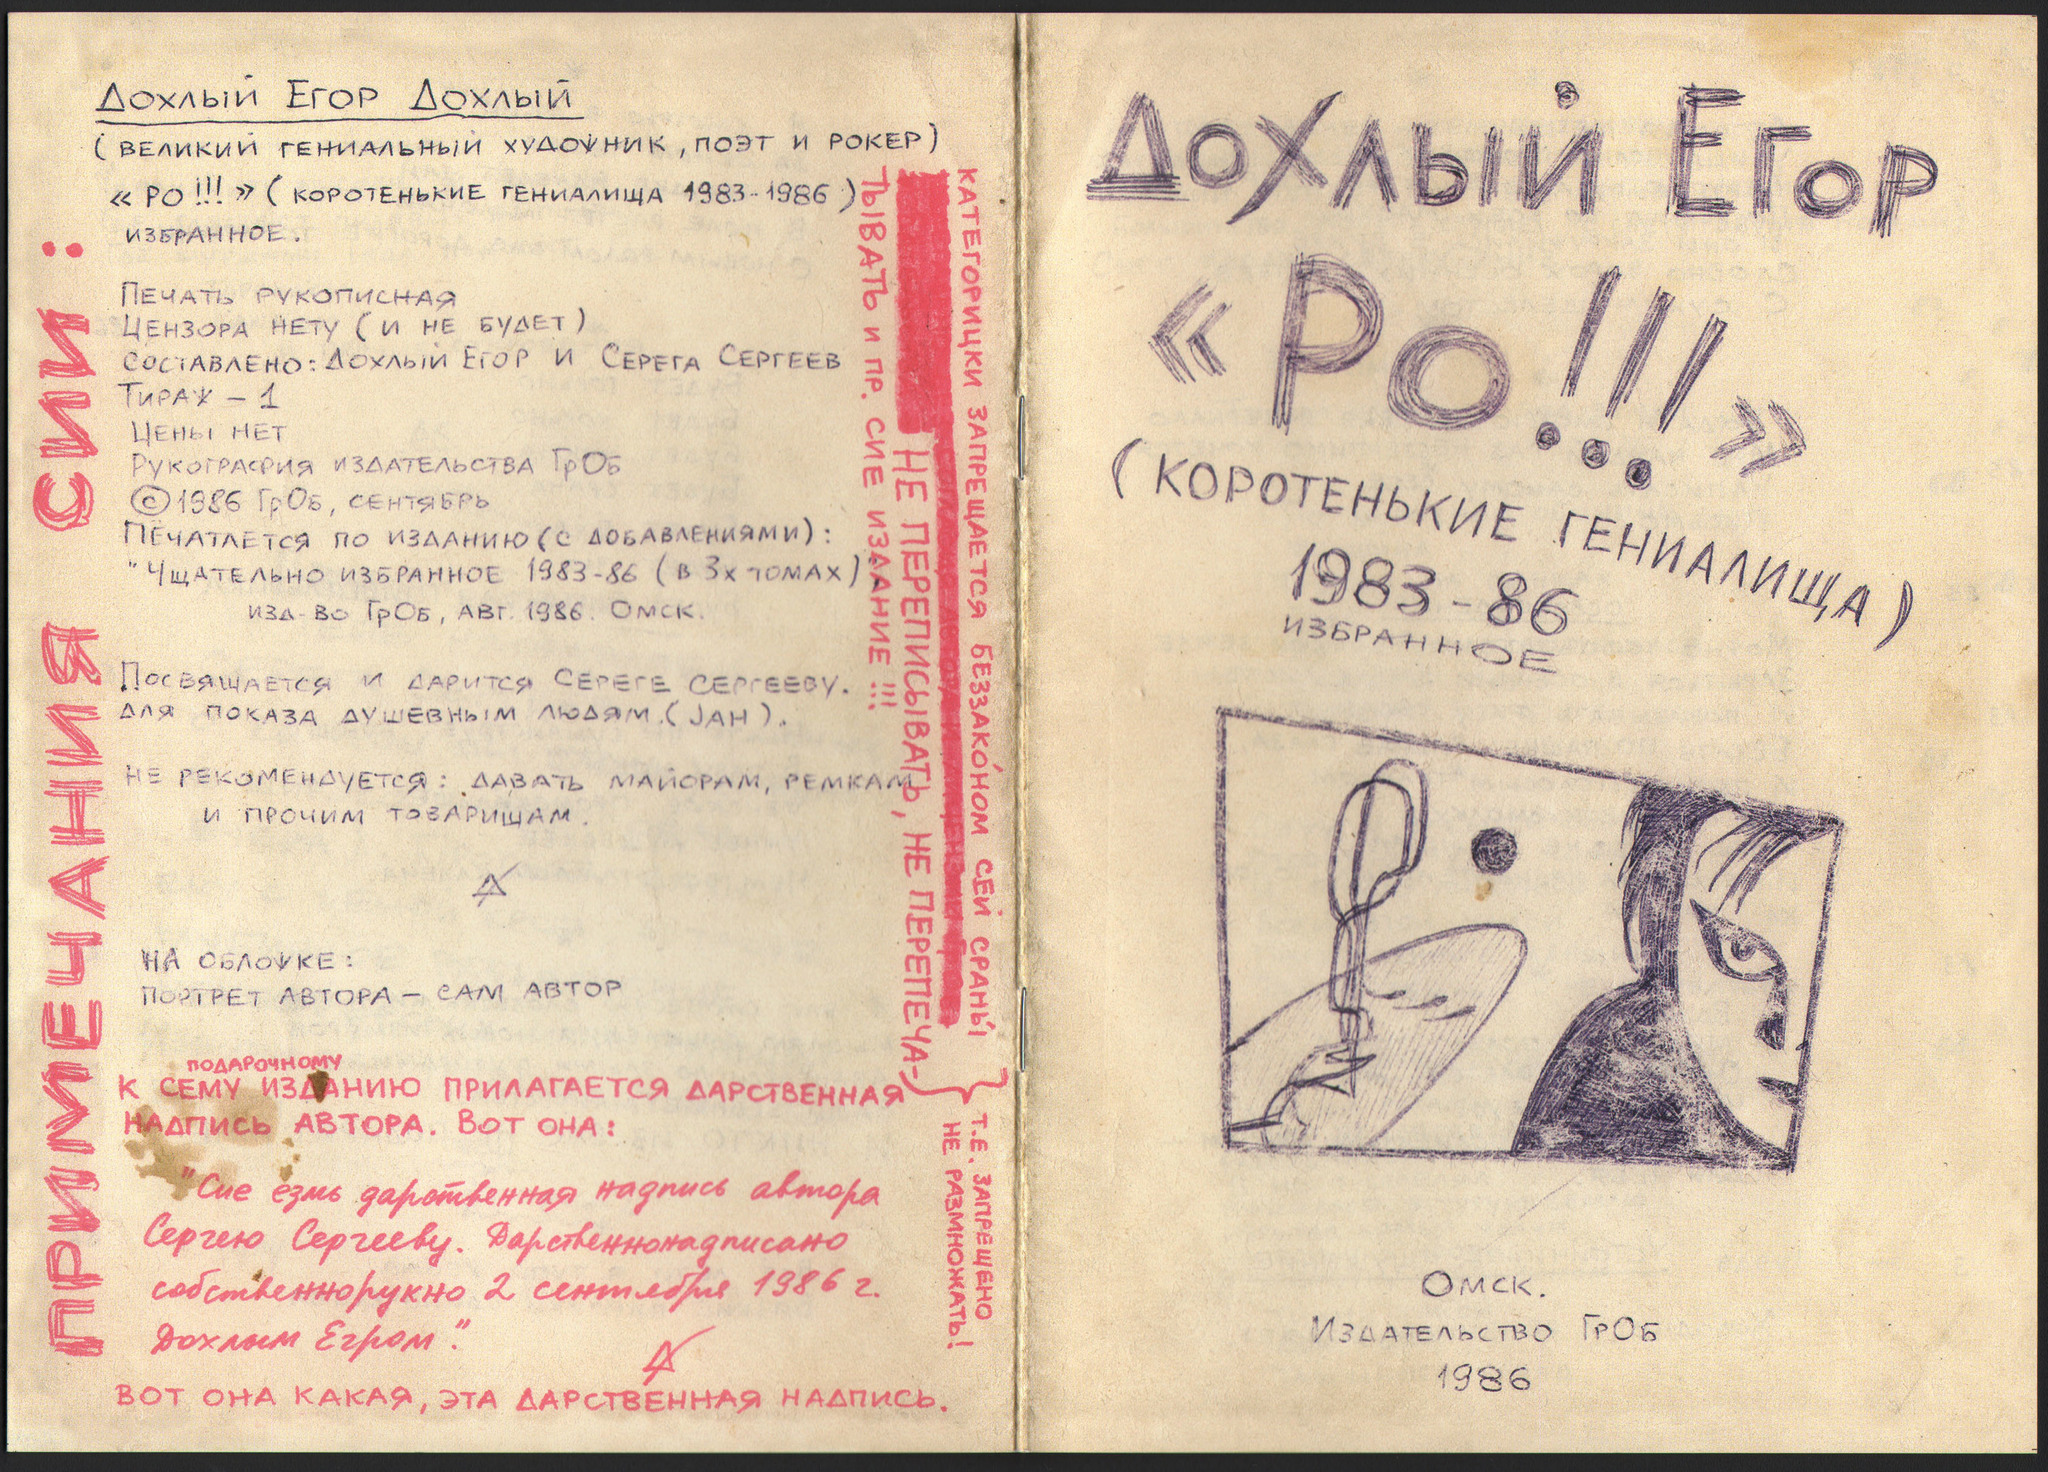 Дохлый Егор Дохлый
(великий гениальный художник, поэт и рокер)
« Ро!!! » (коротенькие гениалища 1983-1986)
избранное.
Печать рукописная
Цензора нету (и не будет)
составлено: Дохлый Егор и Серега Сергеев
Тираж – 1
Цены нет
Рукография издательства ГрОб
© 1986 ГрОб, сентябрь
Печатается по изданию (с добавлениями):
"Чщательно избранное 1983-86 (в 3х томах),
изд-во ГрОб, авг. 1986. Омск.
Посвящается и дарится Сереге Сергееву.
для показа душевным людям. (Jah).
Не рекомендуется: давать майорам, ремкам
и прочим товарищам.
А
На обложке:
портрет автора – сам автор
подарочному
К сему изданию прилагается дарственная
надпись автора. Вот она:
"Сие езмь дарственная надпись автора
Сергею Сергееву. Дарственнонадписано
собственнорукно 2 сентября 1986 г.
Дохлым Егром".
А
Вот она какая, эта дарственная надпись.
ПРИМЕЧАНИЯ СИИ:
Категорицки запрещается беззако́ном сей сраны́
не переписывать, не перепеча-
тывать и пр. сие издание!!!
т.е. запрещено
не размножать!
Дохлый Егор
« Ро!!! »
(коротенькие гениалища)
1983-86
избранное
Омск.
Издательство ГрОб
1986